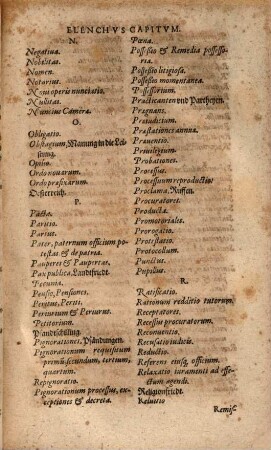 ELENCHVS CAPITVM.
N.
Negatiua.
Nobilitas.
Nomen.
Notarius.
Noui operis nunciatio.
Nullitas.
Nuncius Cameræ.
O.
Obligatio.
Obstagium, Manung in die Lei-
stung.
Optio.
Ordo nouarum.
Ordo præfixarum.
Osterreich.
P.
Pacta.
Paritio.
Partus.
Pater, paternum officium po-
testas & de patrea.
Pauperes & Paupertas.
Pax publica, Landtfridt.
Pecunia.
Pensio, Pensiones.
Peritus, Periti.
Periurium & Periurus.
Petitorium.
Pfandtschilling.
Pignorationes, Pfändungen.
Pignorationum requisitum
primũ, secundum, tertium,
quartum.
Repignoratio.
Pignorationum processus, ex-
ceptiones & decreta.
Pœna.
Possessio & Remedia possesso-
ria.
Possessio litigiosa.
Possessio momentanea.
Possessorium.
Practicanten vnd Partheyen.
Pragmani.
Præiudicium.
Præstationes annuæ.
Præuentio.
Priuilegium.
Probationes.
Processus.
Processuum reproductio.
Proclama, Ruffen.
Procuratores.
Producta.
Promotoriales.
Prorogatio.
Protestatio.
Protocollum.
Punctus.
Pupillus.
R.
Ratificatio.
Rationum redditio tutorum.
Receptatores.
Recessus procuratorum.
Reconuentio.
Recusatio iudicis.
Reductio.
Referens eiusq́; officium.
Relaxatio iuramenti ad effe-
ctum agendi.
Religionfridt.
Reluitio
Remiss